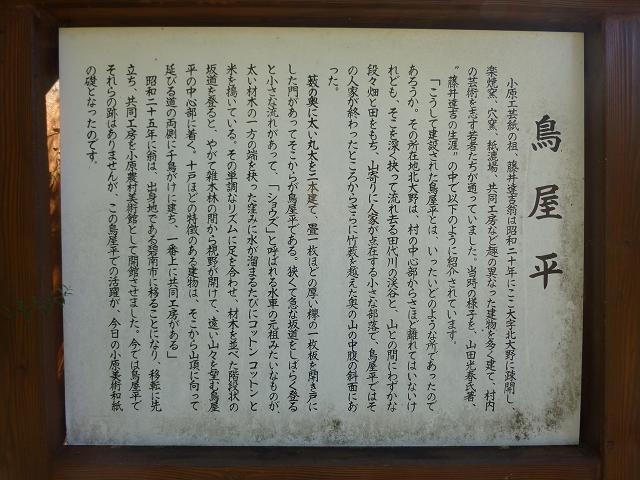 鳥屋平
小原工芸紙の祖 藤井達吉翁は昭和二十年にここ大字北大野に疎開し、
楽焼窯、穴窯、紙漉場、共同工房など趣の異なった建物を多く建て、村内
の芸術を志す若者たちが通っていました。当時の様子を、山田光春氏著、
〝藤井達吉の生涯〟の中で以下のように紹介されています。
「こうして建設された鳥屋平とは、いったいどのような所であったので
あろうか。その所在地北大野は、村の中心部からさほど離れてはいないけ
れども、そこを深く抉って流れ去る田代川の渓谷と、山との間にわずかな
段々畑と田をもち、山寄りに人家が点在する小さな部落で、鳥屋平ではそ
の人家が終わったところからさらに竹薮を越えた奥の山の中腹の斜面にあ
った。
薮の奥に太い丸太を二本建て、畳一枚ほどの厚い欅の一枚板を開き戸に
した門があってそこからが鳥屋平である。狭くて急な坂道をしばらく登る
と小さな流れがあって、「ショウズ」と呼ばれる水車の元祖みたいなものが、
太い材木の一方の端を抉った窪みに水が溜まるたびにコットンコットンと
米を搗いている。その単調なリズムに足を合わせ、材木を並べた階段状の
坂道を登ると、やがて雑木林の間から視野が開けて、遠い山々を望む鳥屋
平の中心部に着く。十戸ほどの特徴のある建物は、そこから山頂に向って
延びる道の両側に千鳥がけに建ち、一番上に共同工房がある」
昭和二十五年に翁は、出身地である碧南市に移ることになり、移転に先
立ち、共同工房を小原農村美術館として開館させました。今では鳥屋平で
それらの跡はありませんが、この鳥屋平での活躍が、今日の小原美術和紙
の礎となったのです。